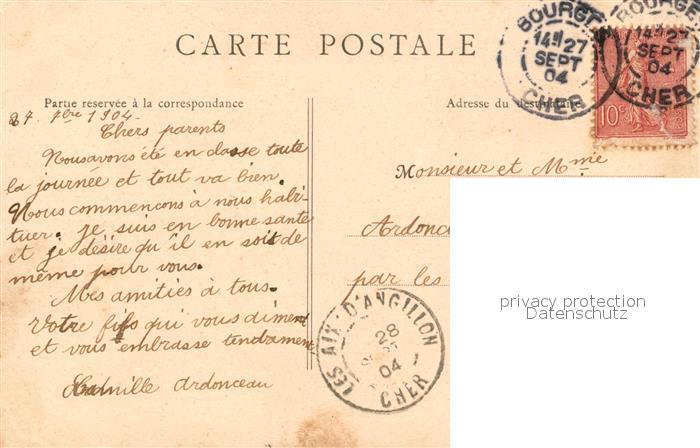 CARTE POSTALE
BOURGES
14H 27
SEPT
04
CHER
BOURGES
14H 27
SEPT
04
CHER
10c
Partie réservée à la correspondance
Adresse du destinataire
27. 7bre 1904.
Chers parents
Nous avons été en classe toute
la journée et tout va bien.
Nous commençons à nous habi-
tuer. je suis en bonne santé
et je désire qu'il en soit de
même pour vous.
Mes amitiés à tous.
Votre fils qui vous aiment
et vous embrasse tendrement
Camille Ardonceau
Monsieur et Mme
Ardonc
par les
LES AIX D'ANGILLON
28
04
CHER
privacy protection
Datenschutz